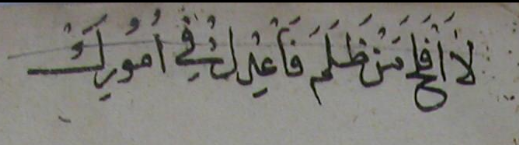 لَا أَفْلَحَ مَنْ ظَلَمَ فَاعْدِلْ فِي أُمُورِكَ